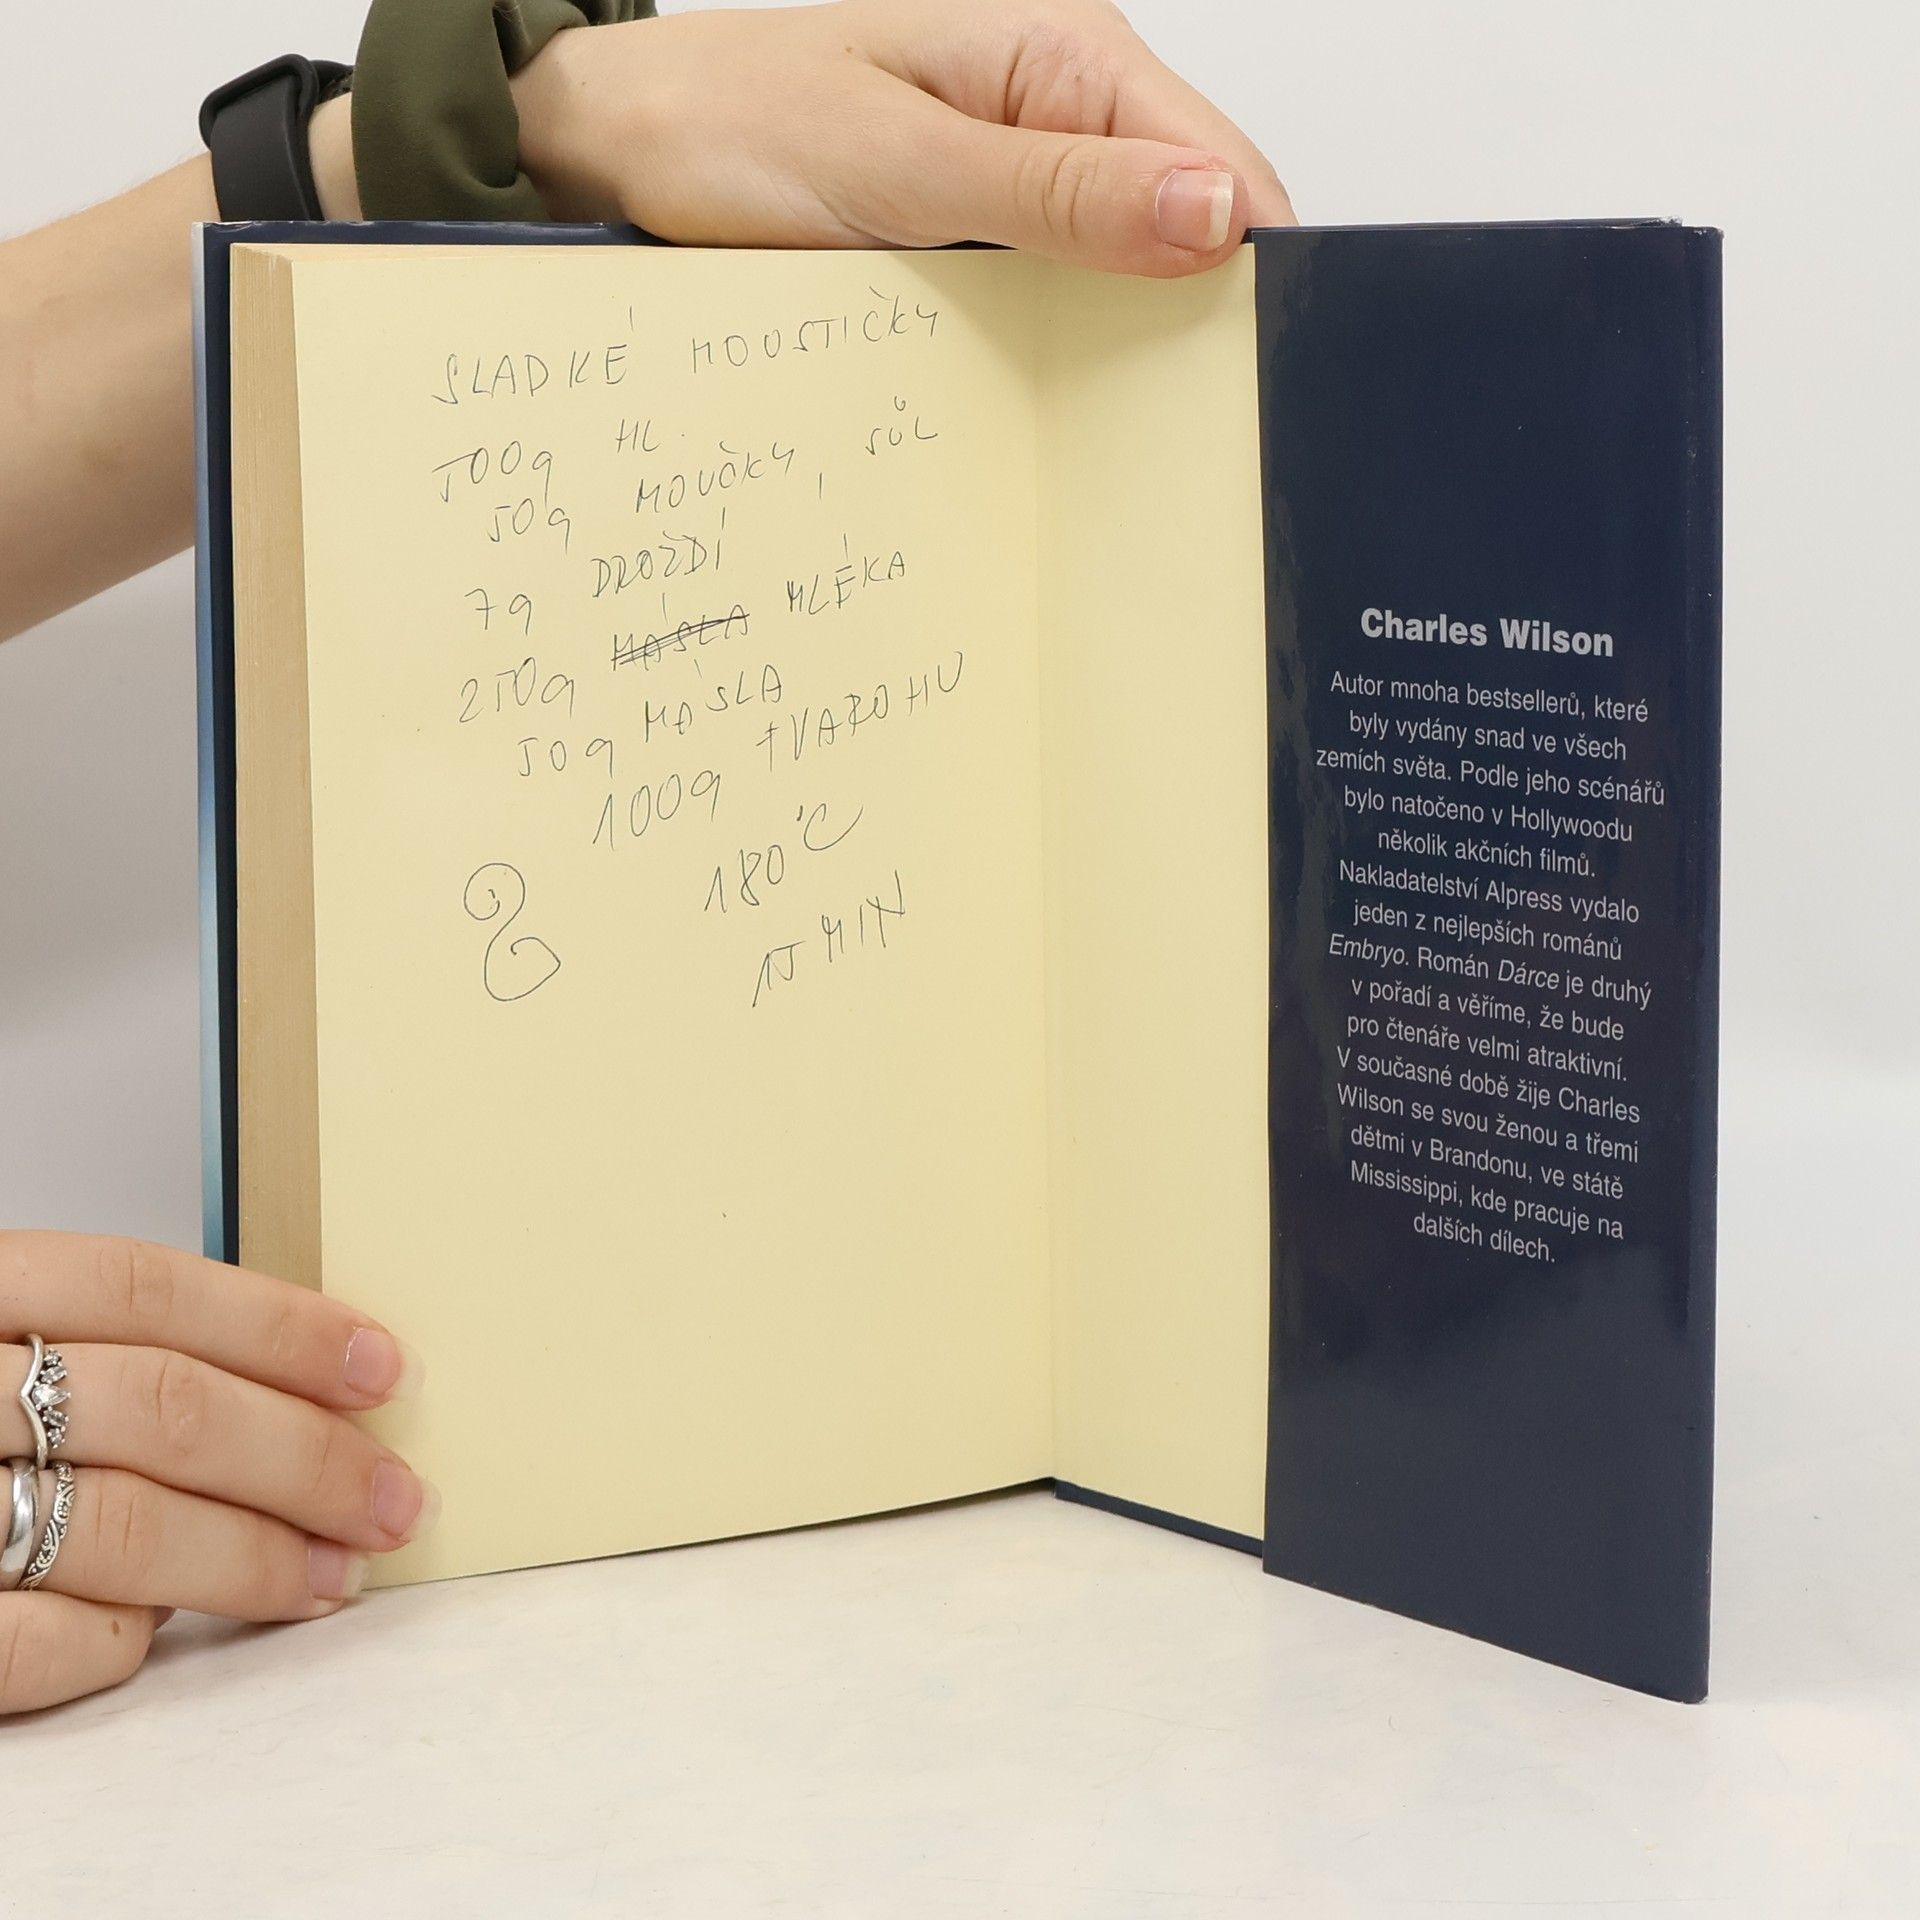 SLADKÉ HOUSTIČKY
500g HL.
50g MOUČKY, SŮL
7g DROŽDÍ
250g MÁSLA MLÉKA
50g MÁSLA
100g TVAROHU
180°C
15 MIN
Charles Wilson
Autor mnoha bestsellerů, které
byly vydány snad ve všech
zemích světa. Podle jeho scénářů
bylo natočeno v Hollywoodu
několik akčních filmů.
Nakladatelství Alpress vydalo
jeden z nejlepších románů
Embryo. Román Dárce je druhý
v pořadí a věříme, že bude
pro čtenáře velmi atraktivní.
V současné době žije Charles
Wilson se svou ženou a třemi
dětmi v Brandonu, ve státě
Mississippi, kde pracuje na
dalších dílech.